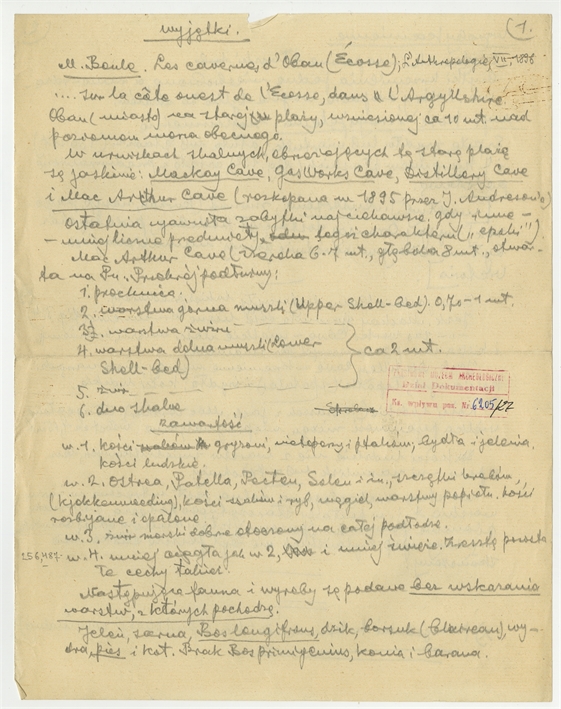 wyjątki.
(1.
M. Boule. Les cavernes d'Oban (Écosse), L'Anthropologie, VII, 1896
.... sur la côte ouest de l'Ecosse, dans l'Argyllshire
Oban (miasto) na starej plaży, wzniesionej ca 10 mt. nad
poziomem morza obecnego.
W urwiskach skalnych, obrzeżających tę starą plażę
są jaskinie: Mackay Cave, Gas Works Cave, Distillery Cave
i Mac Arthur Cave (rozkopana w 1895 przez J. Andersona)
Ostatnia zawarła zabytki najciekawsze, gdy inne -
- mniej liczne przedmioty tegoż charakteru („epoki").
Mac Arthur Cave (szeroka 6-7 mt., głęboka 8 mt., otwar-
ta na Pn. Przekrój podłużny:
1. próchnica.
2. warstwa górna muszli (Upper Shell-bed). 0,70-1 mt.
3. warstwa żwiru
4. warstwa dolna muszli (Lower
Shell-bed)
ca 2 mt.
5. żwir
6. dno skalne
Dział Dokumentacji
Ks. wpływów poz. Nr 6205/27
zawartość
w. 1. kości gryzoni, nietoperzy i ptaków, bydła i jelenia.
kości ludzkie.
w. 2. Ostrea, Patella, Pecten, Solen i in., szczątki krabów,
(kjokkenmedding), kości ssaków i ryb, węgiel, warstwy popiołu. Kości
rozbijane i opalone.
w. 3. żwir morski dobrze otoczony na całej podłodze.
w. 4. mniej ciągła jak w 2, i mniej święże. Zresztą posiada
te cechy także.
Następująca fauna i wyroby są podane bez wskazania
warstw, z których pochodzą.
Jeleń, sarna, Bos longifrons, dzik, borsuk (blaireau), wy-
dra, pies i kot. Brak Bos primigenius, konia i barana.